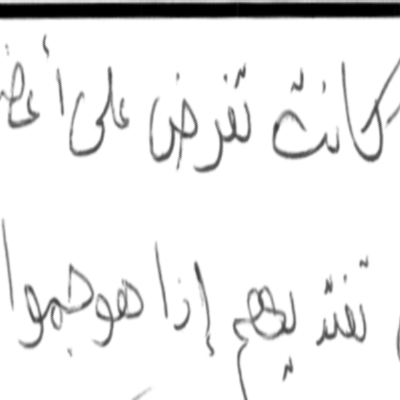 كانت تفرض على أعض
تفتديهم إذا هوجموا